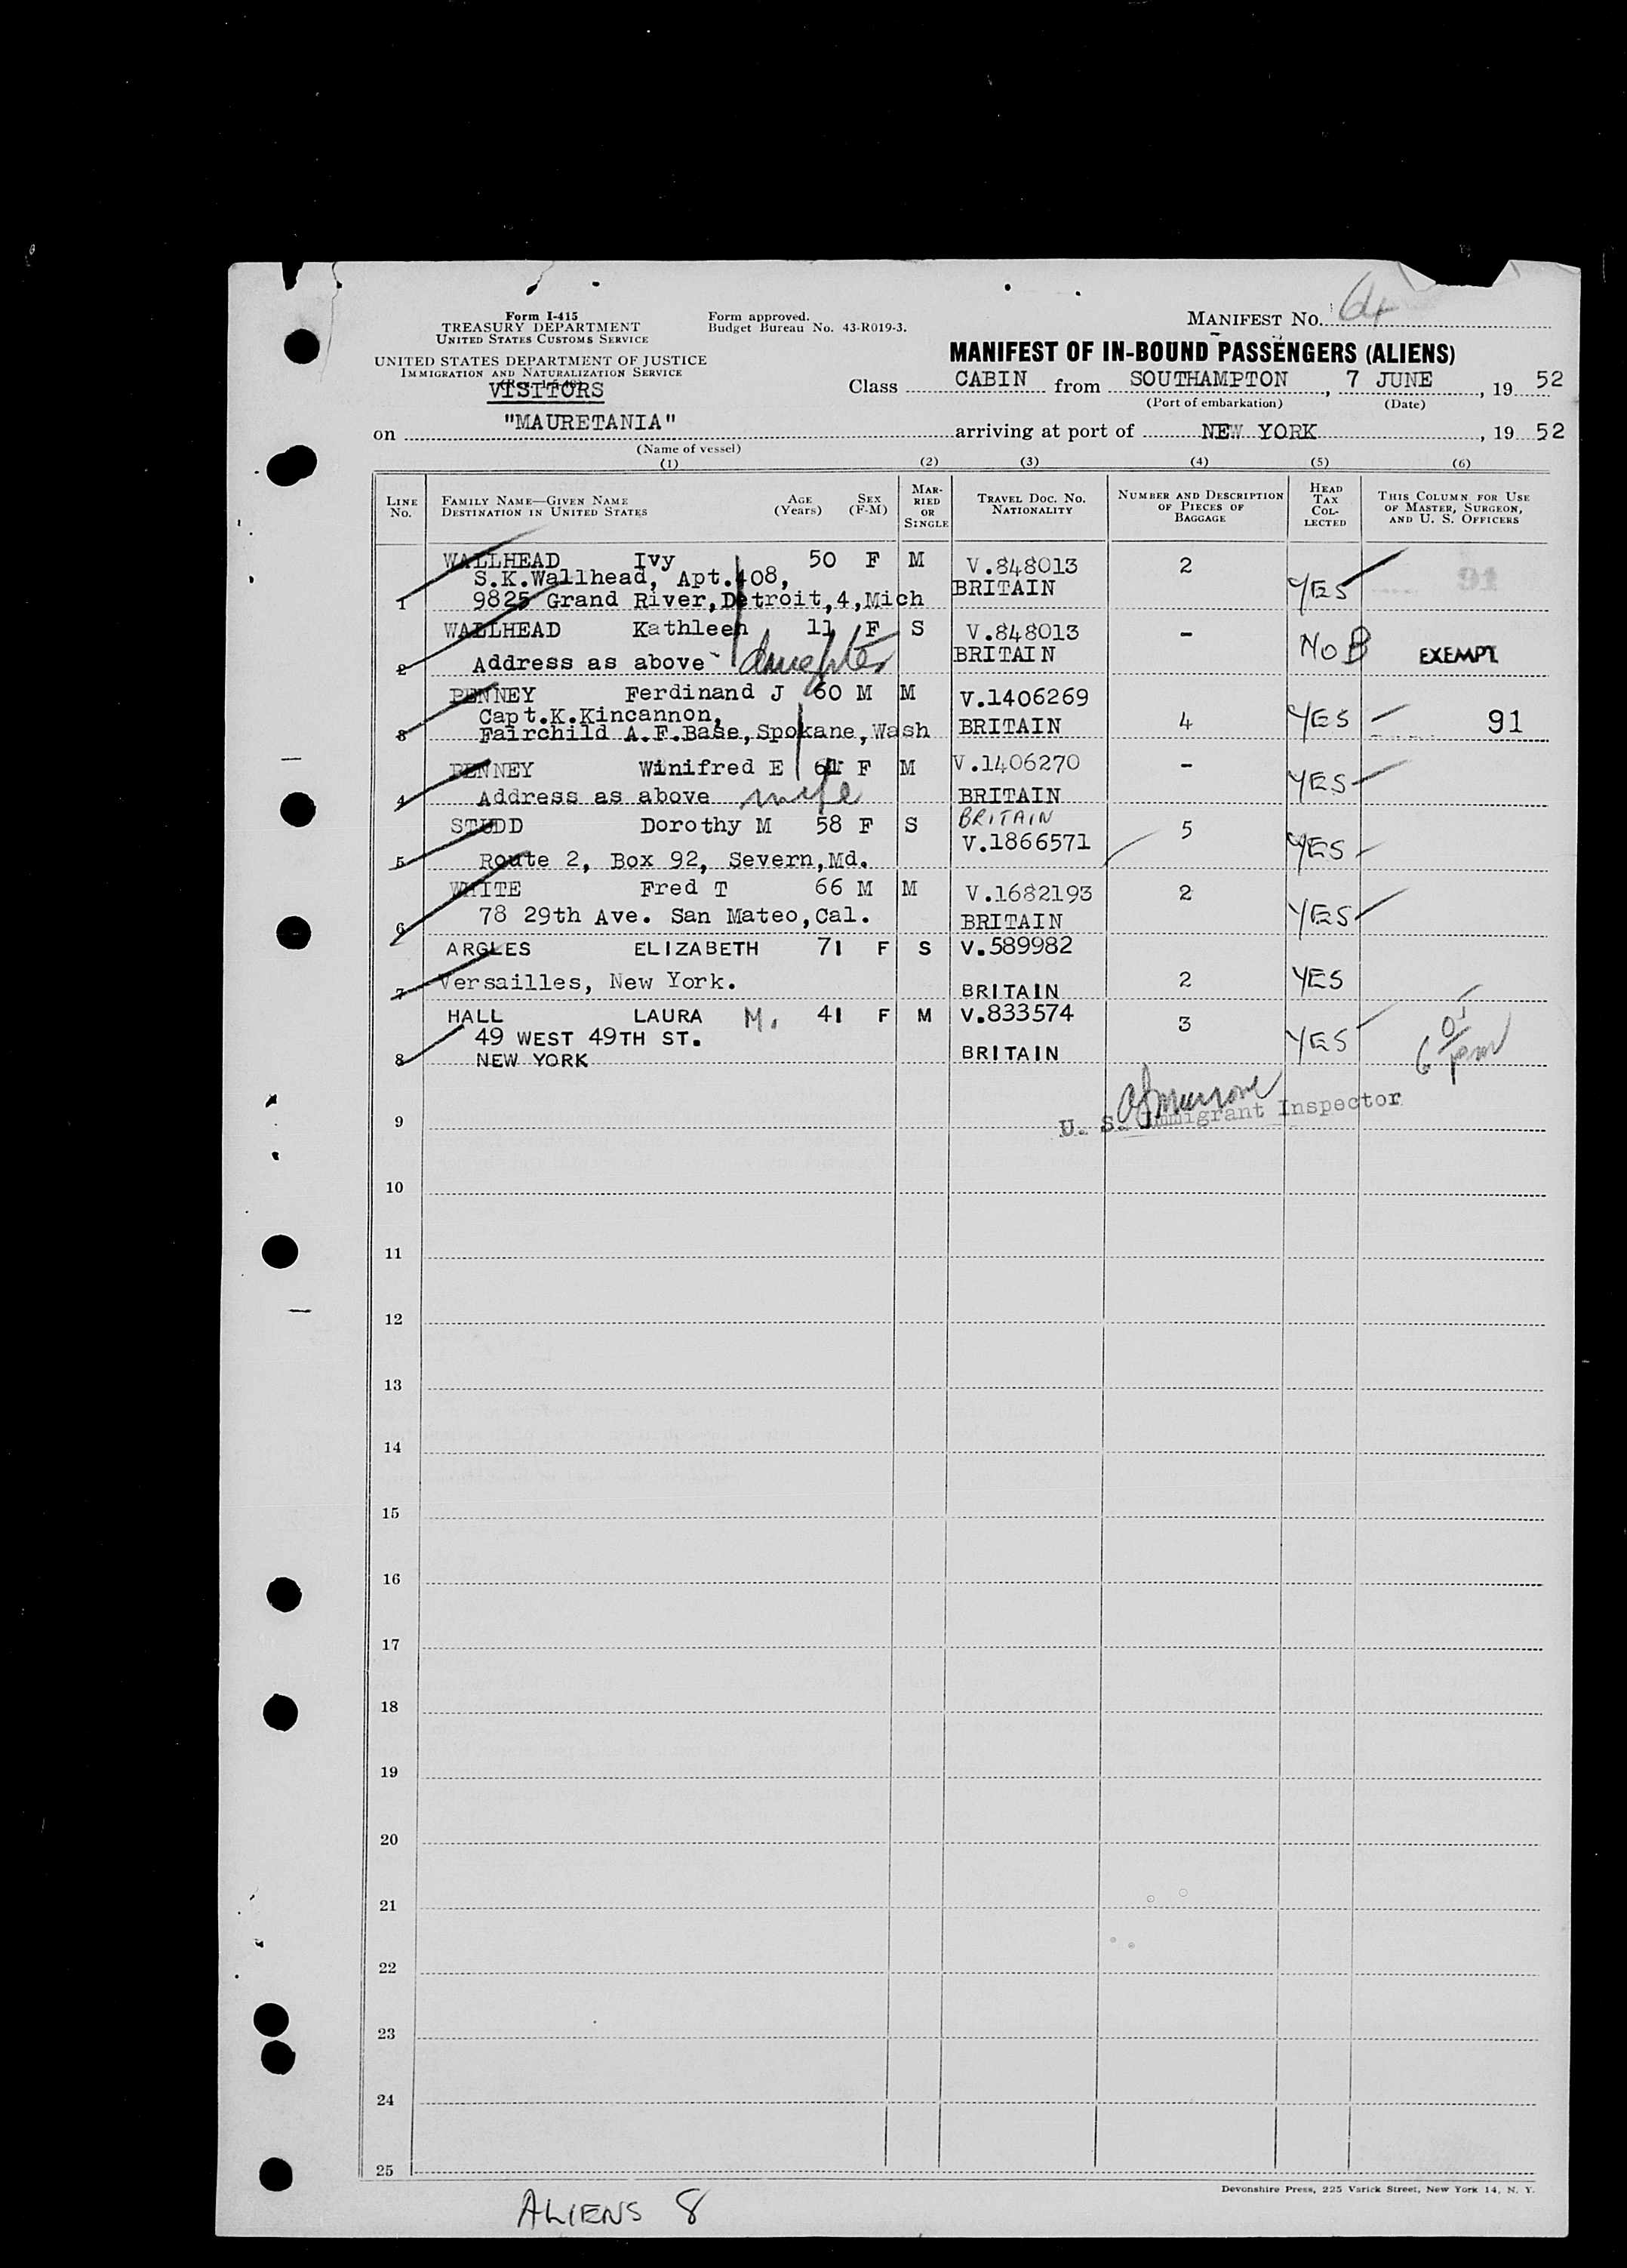 Form I-415
TREASURY DEPARTMENT
UNITED STATES CUSTOMS SERVICE
Form approved.
Budget Bureau No. 43-R019-3.
MANIFEST NO.
UNITED STATES DEPARTMENT OF JUSTICE
IMMIGRATION AND NATURALIZATION SERVICE
VISITORS
MANIFEST OF IN-BOUND PASSENGERS (ALIENS)
Class CABIN from SOUTHAMPTON, 7 JUNE, 19 52
(Port of embarkation) (Date)
on "MAURETANIA" arriving at port of NEW YORK, 19 52
(Name of vessel)
(1) (2) (3) (4) (5) (6)
LINE NO. FAMILY NAME—GIVEN NAME DESTINATION IN UNITED STATES AGE (Years) SEX (F-M) MARRIED OR SINGLE TRAVEL DOC. NO. NATIONALITY NUMBER AND DESCRIPTION OF PIECES OF BAGGAGE HEAD TAX COLLECTED THIS COLUMN FOR USE OF MASTER, SURGEON, AND U. S. OFFICERS
WALLHEAD Ivy 50 F M V.848013 2
S.K.Wallhead, Apt.408, BRITAIN YES 91
1 9825 Grand River,Detroit,4,Mich
WALLHEAD Kathleen 11 F S V.848013 -
2 Address as above daughter BRITAIN No B EXEMPT
PENNEY Ferdinand J 60 M M V.1406269
Capt.K.Kincannon,
3 Fairchild A.F.Base,Spokane,Wash BRITAIN 4 YES 91
PENNEY Winifred E 61 F M V.1406270 -
4 Address as above wife BRITAIN YES
STUDD Dorothy M 58 F S BRITAIN
V.1866571 5
5 Route 2, Box 92, Severn,Md. YES
WHITE Fred T 66 M M V.1682193 2
6 78 29th Ave. San Mateo,Cal. BRITAIN YES
ARGLES ELIZABETH 71 F S V.589982
7 Versailles, New York. BRITAIN 2 YES
HALL LAURA M. 41 F M V.833574 3
49 WEST 49TH ST.
8 NEW YORK BRITAIN YES 6 05 pm
U. S. Immigrant Inspector
9
10
11
12
13
14
15
16
17
18
19
20
21
22
23
24
25
Devonshire Press, 225 Varick Street, New York 14, N. Y.
ALIENS 8